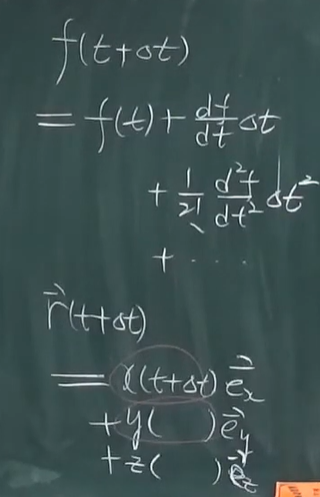 f(t+Δt)
= f(t) + df/dt Δt
+ 1/2! d²f/dt² Δt²
+ ....
r⃗(t+Δt)
= x(t+Δt) e⃗ₓ
+ y( ) e⃗ᵧ
+ z( ) e⃗_z